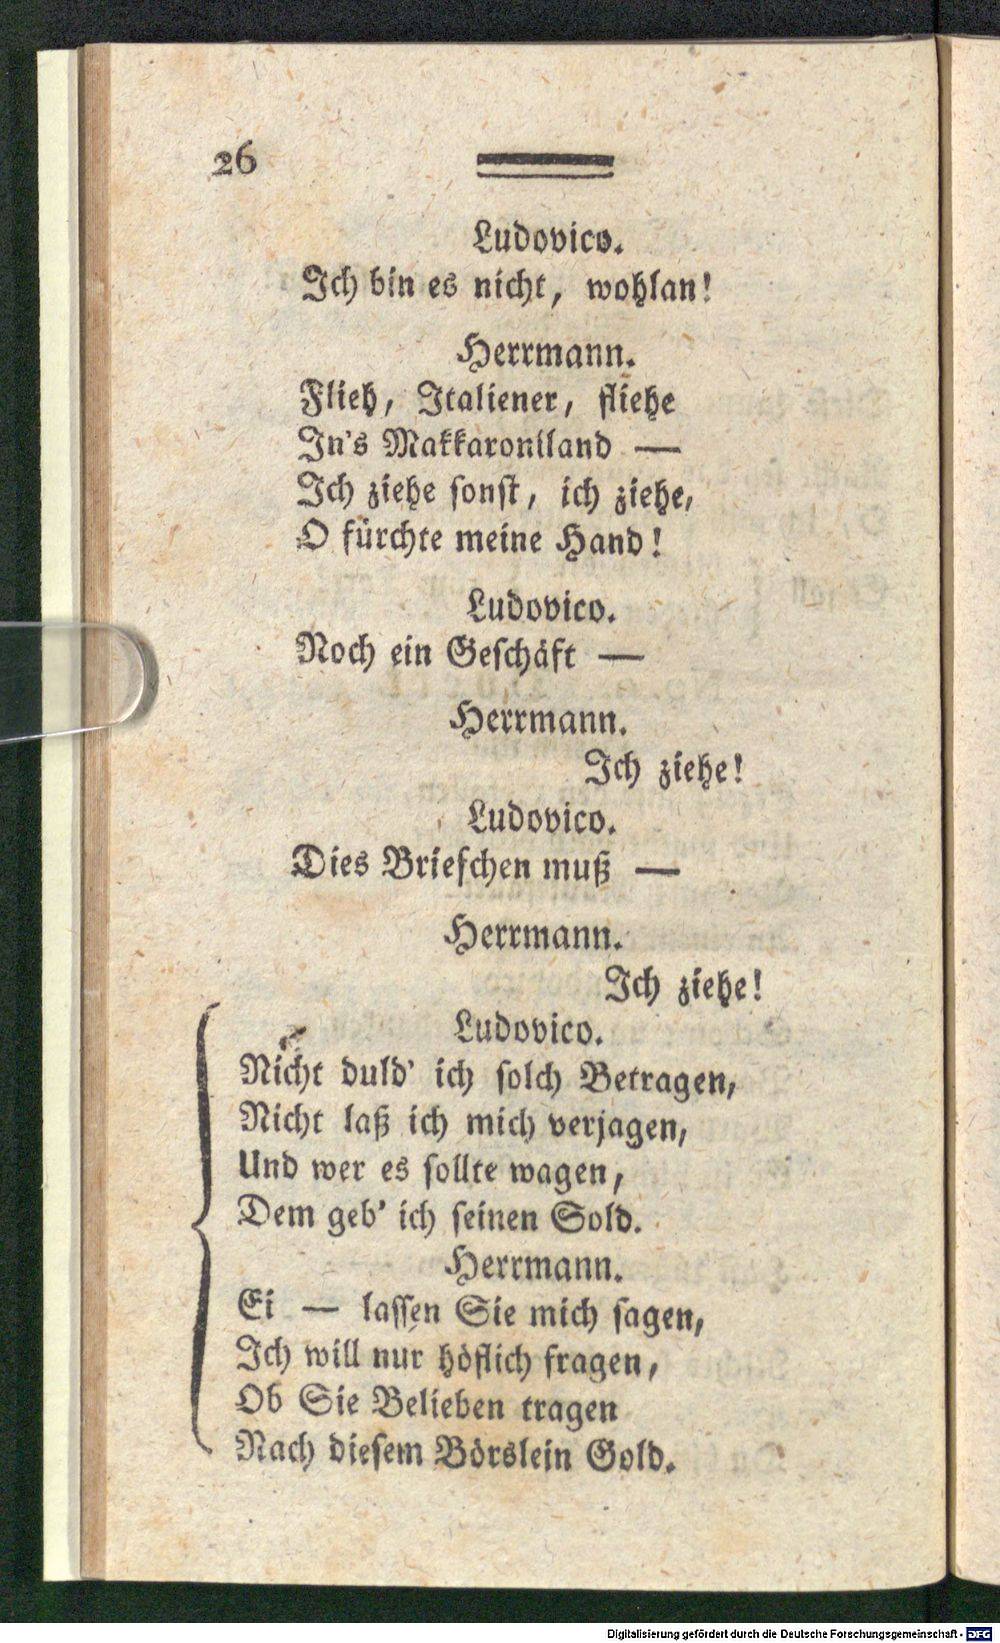 26
Ludovico.
Ich bin es nicht, wohlan!
Herrmann.
Flieh, Italiener, fliehe
In's Makkaroniland —
Ich ziehe sonst, ich ziehe,
O fürchte meine Hand!
Ludovico.
Noch ein Geschäft —
Herrmann.
Ich ziehe!
Ludovico.
Dies Briefchen muß —
Herrmann.
Ich ziehe!
Ludovico.
Nicht duld' ich solch Betragen,
Nicht laß ich mich verjagen,
Und wer es sollte wagen,
Dem geb' ich seinen Sold.
Herrmann.
Ei — lassen Sie mich sagen,
Ich will nur höflich fragen,
Ob Sie Belieben tragen
Nach diesem Börslein Gold.
Digitalisierung gefördert durch die Deutsche Forschungsgemeinschaft - DFG